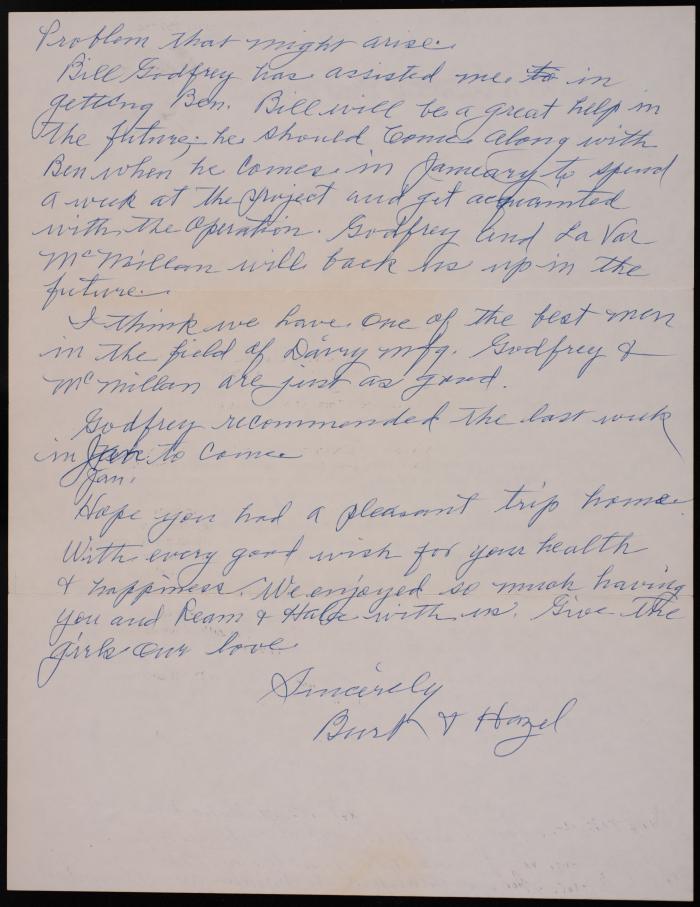 Problem that might arise.
Bill Godfrey has assisted me to in
getting Ben. Bill will be a great help in
the future; he should Come along with
Ben when he comes in January to spend
a week at the project and get acquainted
with the Operation. Godfrey and La Var
McMillan will back us up in the
future.
I think we have one of the best men
in the field of Dairy mfg. Godfrey &
McMillan are just as good.
Godfrey recommended the last week
in Jan to come
Jan.
Hope you had a pleasant trip home.
With every good wish for your health
& happiness. We enjoyed so much having
you and Ream & Hale with us. Give the
girls our love
Sincerely
Burt & Hazel